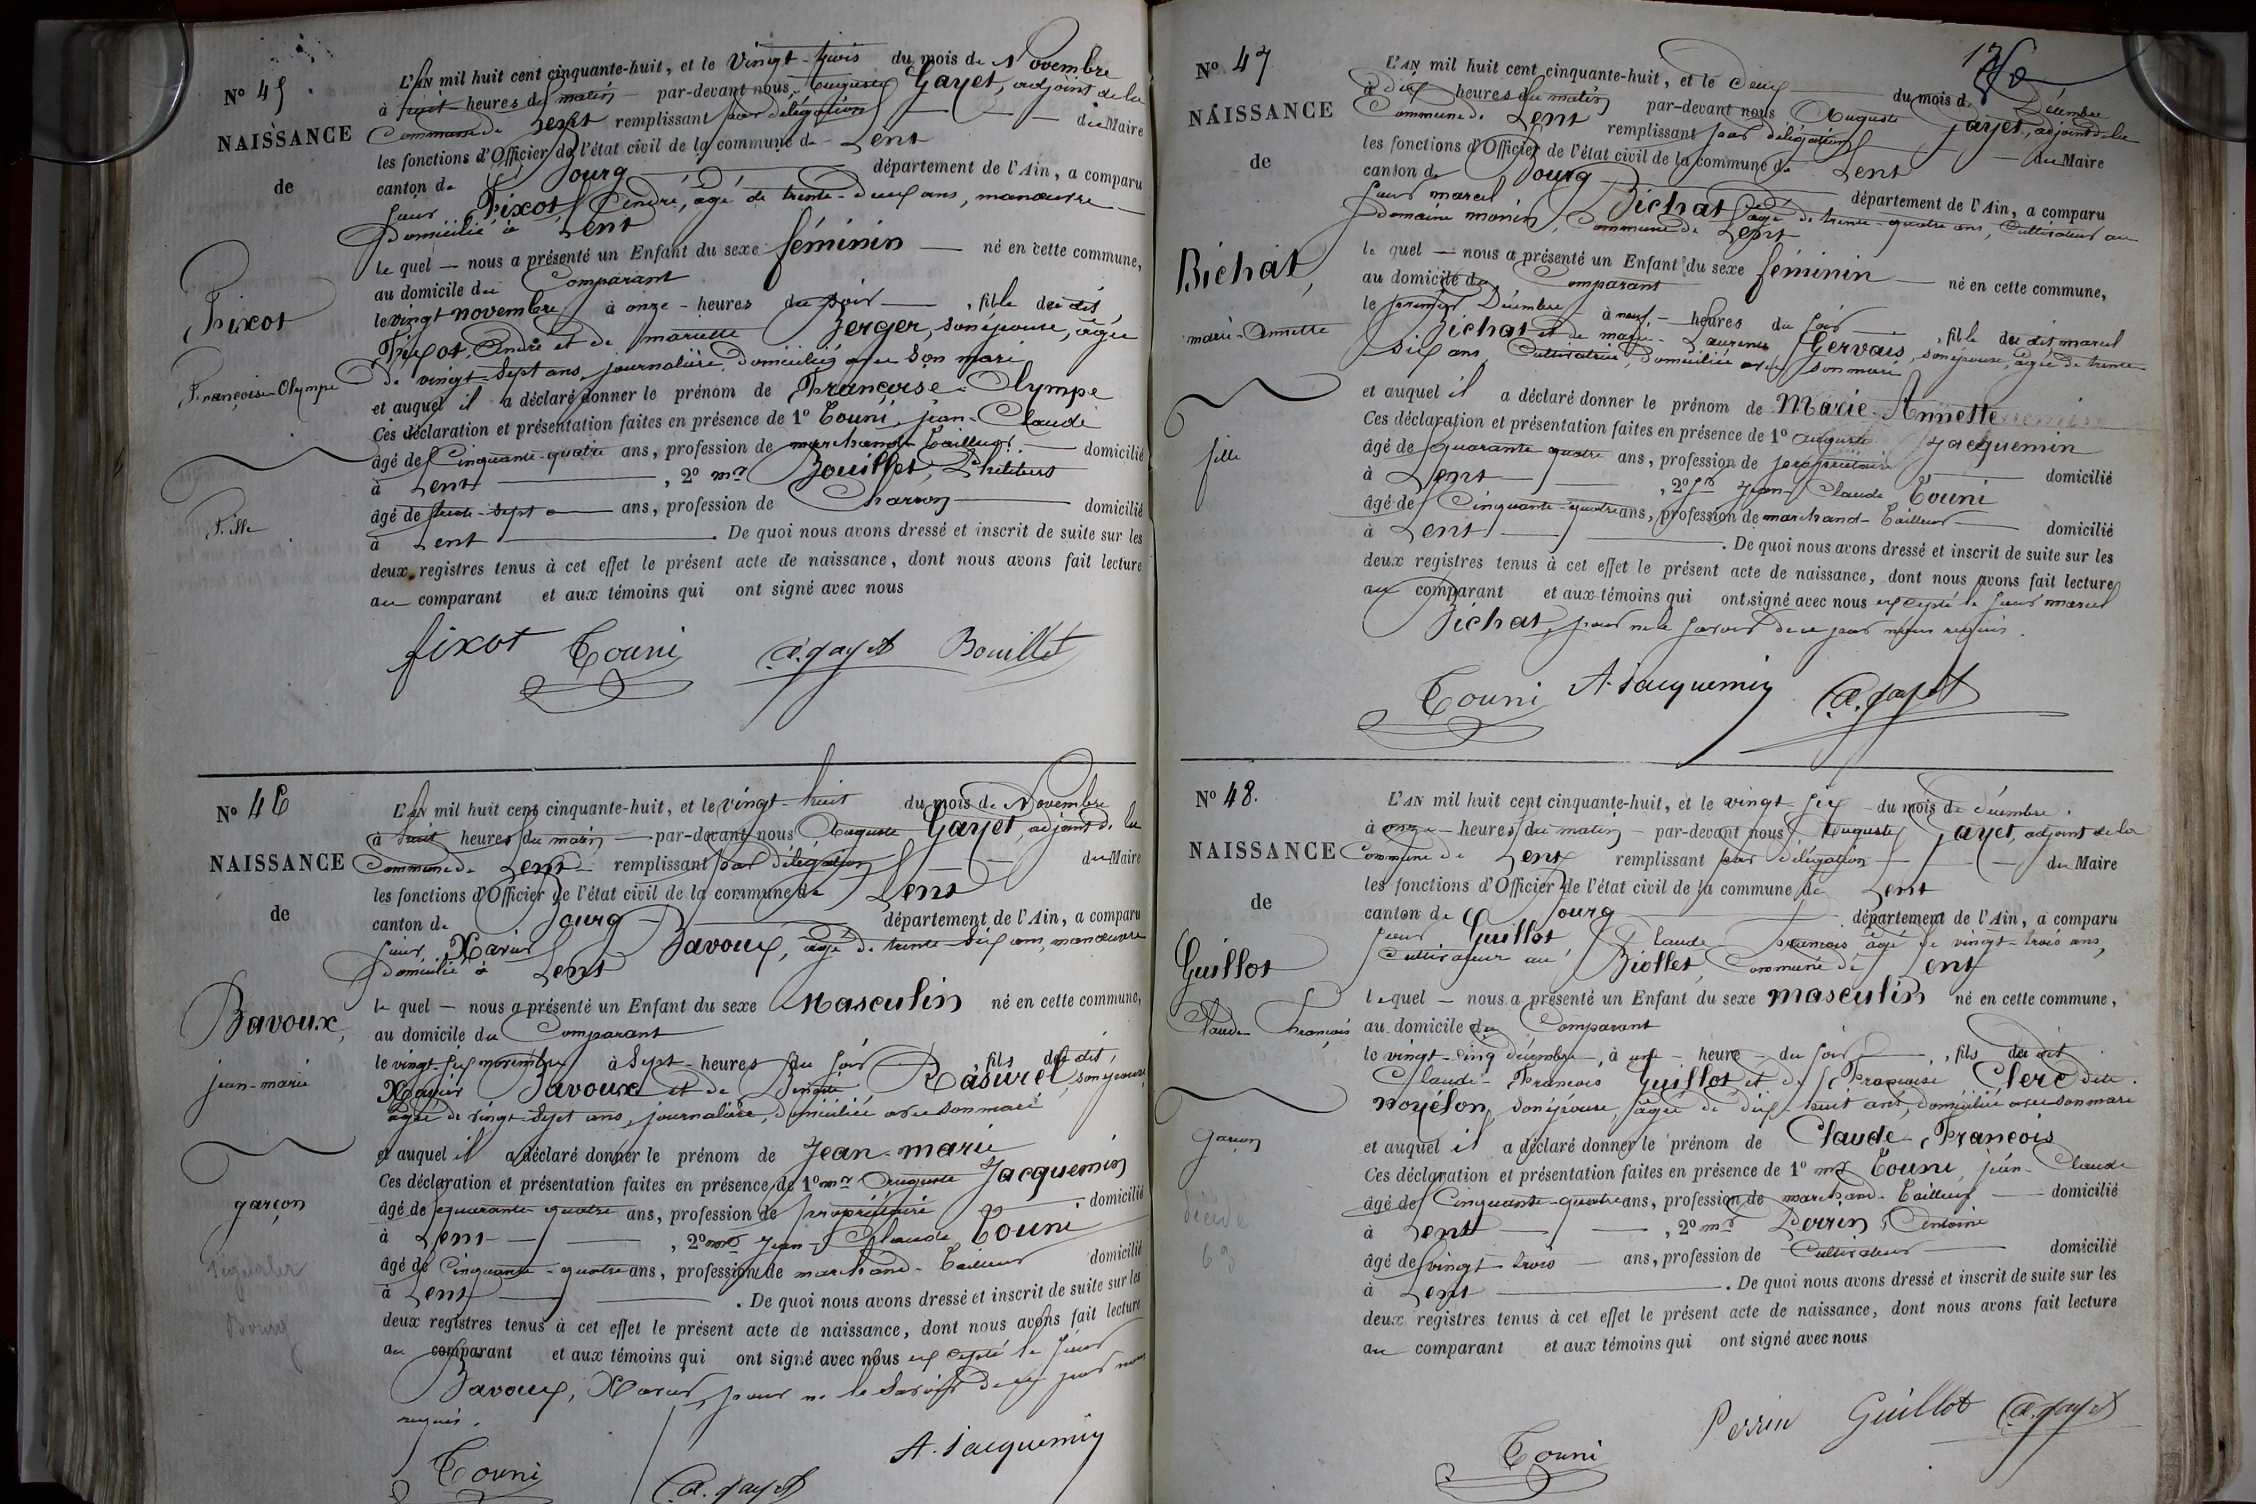 N° 45
NAISSANCE
de
Fixot
Françoise-Olympe
Fille
L'AN mil huit cent cinquante-huit, et le vingt-trois du mois de Novembre
à huit heures du matin par-devant nous, Auguste Gayet, adjoint de la
Commune de Lent remplissant par délégation du Maire
les fonctions d'Officier de l'état civil de la commune de Lent
canton de Bourg département de l'Ain, a comparu
sieur Fixot André, âgé de trente-deux ans, manœuvre
domicilié à Lent
le quel nous a présenté un Enfant du sexe féminin né en cette commune,
au domicile du Comparant
le vingt novembre à onze heures du soir, fille du dit
Fixot, André et de mariette Berger, son épouse, âgée
de vingt-sept ans, journalière, domiciliée avec son mari
et auquel il a déclaré donner le prénom de Françoise-Olympe
Ces déclaration et présentation faites en présence de 1° Touni, jean-Claude
âgé de Cinquante-quatre ans, profession de marchand-Tailleur domicilié
à Lent, 2° mr Bouillet, Philibert
âgé de trente-sept ans, profession de Charron domicilié
à Lent. De quoi nous avons dressé et inscrit de suite sur les
deux registres tenus à cet effet le présent acte de naissance, dont nous avons fait lecture
au comparant et aux témoins qui ont signé avec nous
fixot Touni A. gayet Bouillet
N° 46
NAISSANCE
de
Bavoux,
jean-marie
garçon
Bourg
L'AN mil huit cent cinquante-huit, et le vingt-huit du mois de Novembre
à huit heures du matin par-devant nous Auguste Gayet, adjoint de la
Commune de Lent remplissant par délégation du Maire
les fonctions d'Officier de l'état civil de la commune de Lent
canton de Bourg département de l'Ain, a comparu
sieur Xavier Bavoux, âgé de trente-six ans, manœuvre
domicilié à Lent
le quel nous a présenté un Enfant du sexe Masculin né en cette commune,
au domicile du Comparant
le vingt-six novembre à Sept heures du soir, fils du dit
Xavier Bavoux et de Benoite Rasurel, son épouse
âgée de vingt-sept ans, journalière, domiciliée avec son mari
et auquel il a déclaré donner le prénom de Jean-marie
Ces déclaration et présentation faites en présence de 1° mr Auguste Jacquemin
âgé de quarante-quatre ans, profession de propriétaire domicilié
à Lent, 2° mr Jean-Claude Touni
âgé de Cinquante-quatre ans, profession de marchand-Tailleur domicilié
à Lent. De quoi nous avons dressé et inscrit de suite sur les
deux registres tenus à cet effet le présent acte de naissance, dont nous avons fait lecture
au comparant et aux témoins qui ont signé avec nous excepté le sieur
Bavoux, Xavier, pour ne le savoir de ce par nous
requis.
Touni A. gayet A. Jacquemin
N° 47
NAISSANCE
de
Bichat,
marie-Annette
fille
L'AN mil huit cent cinquante-huit, et le Deux du mois de Décembre
à dix heures du matin par-devant nous Auguste Gayet, adjoint de la
Commune de Lent remplissant par délégation du Maire
les fonctions d'Officier de l'état civil de la commune de Lent
canton de Bourg département de l'Ain, a comparu
sieur marcel Bichat âgé de trente-quatre ans, Cultivateur au
domaine monin, Commune de Lent
le quel nous a présenté un Enfant du sexe féminin né en cette commune,
au domicile du Comparant
le premier Décembre à neuf heures du soir, fille du dit marcel
Bichat et de marie-Laurence Gervais, son épouse, âgée de trente
six ans, Cultivatrice, domiciliée avec son mari
et auquel il a déclaré donner le prénom de Marie-Annette
Ces déclaration et présentation faites en présence de 1° auguste Jacquemin
âgé de quarante-quatre ans, profession de propriétaire domicilié
à Lent, 2° Jean-Claude Touni
âgé de Cinquante-quatre ans, profession de marchand-Tailleur domicilié
à Lent. De quoi nous avons dressé et inscrit de suite sur les
deux registres tenus à cet effet le présent acte de naissance, dont nous avons fait lecture
au comparant et aux témoins qui ont signé avec nous excepté le sieur marcel
Bichat, pour ne le savoir de ce par nous requis.
Touni A. Jacquemin A. gayet
N° 48.
NAISSANCE
de
Guillot
Claude François
garçon
décédé
63
L'AN mil huit cent cinquante-huit, et le vingt-six du mois de décembre.
à onze heures du matin par-devant nous Auguste Gayet, adjoint de la
Commune de Lent remplissant par délégation du Maire
les fonctions d'Officier de l'état civil de la commune de Lent
canton de Bourg département de l'Ain, a comparu
sieur Guillot, Claude François âgé de vingt-trois ans,
Cultivateur au Biollet, Commune de Lent
lequel nous a présenté un Enfant du sexe masculin né en cette commune,
au domicile du Comparant
le vingt-cinq décembre, à une heure du soir, fils du dit
Claude-François Guillot et de Françoise Clerc dite
Noyélon, son épouse, âgée de dix-huit ans, domiciliée avec son mari
et auquel il a déclaré donner le prénom de Claude-François
Ces déclaration et présentation faites en présence de 1° mr Touni, jean-Claude
âgé de Cinquante-quatre ans, profession de marchand-Tailleur domicilié
à Lent, 2° mr Perrin, Antoine
âgé de vingt-trois ans, profession de Cultivateur domicilié
à Lent. De quoi nous avons dressé et inscrit de suite sur les
deux registres tenus à cet effet le présent acte de naissance, dont nous avons fait lecture
au comparant et aux témoins qui ont signé avec nous
Perrin Guillot A. gayet
Touni